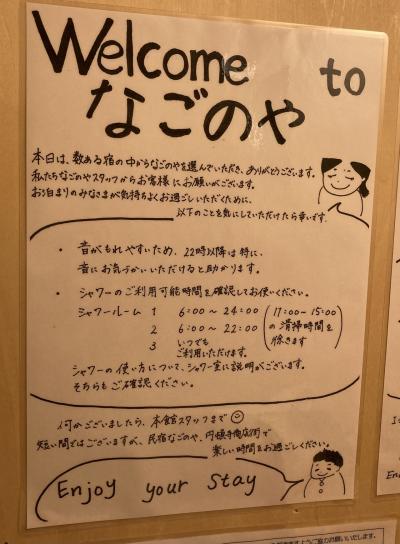 Welcome to
なごのや
本日は、数ある宿の中からなごのやを選んでいただき、ありがとうございます。
私たちなごのやスタッフからお客様にお願いがございます。
お泊まりのみなさまが気持ちよくお過ごしいただくために、
以下のことを気にしていただけたら幸いです。
・ 音がもれやすいため、22時以降は特に、
音にお気づかいいただけると助かります。
・ シャワーのご利用可能時間を確認してお使いください。
シャワールーム 1 6:00〜24:00
2 6:00〜22:00
3 いつでも
ご利用いただけます。
(11:00〜15:00
の清掃時間を
除きます)
シャワーの使い方について、シャワー室に説明がございます。
そちらもご確認ください。
何かございましたら、本館スタッフまで
短い間ではございますが、民宿なごのや、円頓寺商店街で
楽しい時間をお過ごしください。
Enjoy your stay